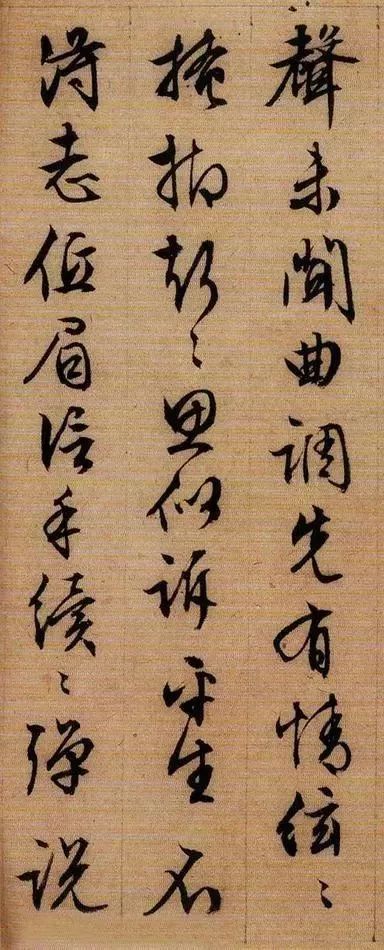 聲未聞曲調先有情絃〻
掩抑聲〻思似訴平生不
得志低眉信手續〻彈説